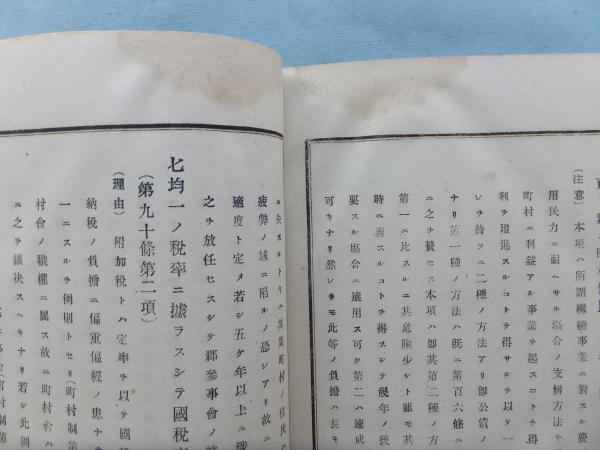 (注意) 本項ハ所謂繼續事業ニ對スル費
用民力ニ耐ヘサル塲合ノ支辨方法ヲ
町村ニ利益アル事業ヲ起スコトヲ得
利ヲ増進スルコトヲ得サルヲ以テ一
シテ待ツニ二種ノ方法アリ卽公債ノ
ナリ第一種ノ方法ハ旣ニ第百六條ニ
ニ之ヲ載セス本項ハ卽其第二種ノ方
第一ニ比スルニ其危險少シト雖モ其
時ニ奏スルコトヲ得スシテ幾年ノ後
要スル塲合ニ適用ス可ク第二ハ速成
可キナリ然レモ此等ノ負擔ハ長キ
ニ失スルトキハ其間町村ノ住民
疲弊ノ域ニ陷ルノ恐レアリ故ニ
適度ト定メ若シ五ケ年以上ニ渉
之ヲ放任セスシテ郡參事會ノ
七均一ノ稅率ニ據ラスシテ國稅
(第九十條第二項)
(理由) 附加稅トハ定率ヲ以テ國稅
納稅ノ負擔ニ偏重偏輕ノ患ナ
一ニスルヲ例則トセリ(町村制第
村會ノ職權ニ屬ス故ニ町村會ハ
ニ之ヲ議決スヘキナリ若シ此例